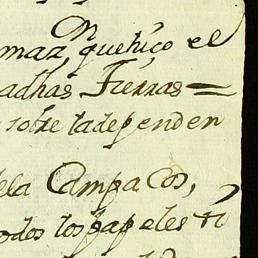 maz, quehiço el
adhas Tierras =
sobre ladependen
ela Compa Cos,
odos los papeles